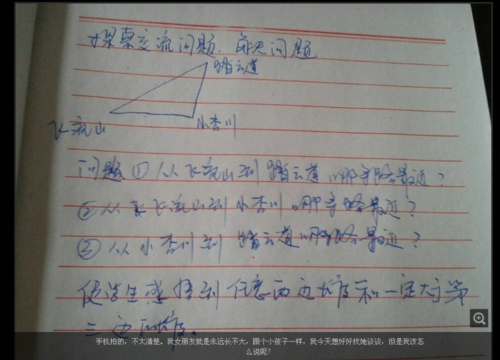 探索交流问题
踏云道
飞流山
小杏川
问题①从飞流山到踏云道哪条路最近?
②从飞流山到小杏川哪条路最近?
③从小杏川到踏云道哪条路最近?
使学生感悟到任意两边长度和一定大于第
三边的长度。
手机拍的,不太清楚,我女朋友就是永远长不大,跟个小孩子一样,我今天想好好找她谈谈,但是我该怎
么说呢?